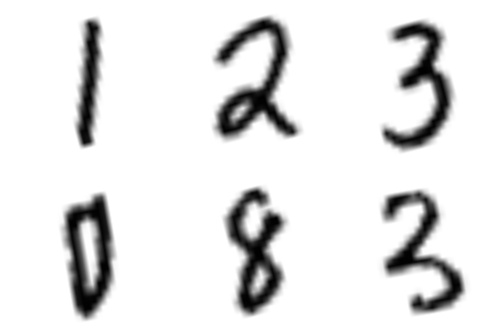 1 2 3
0 8 3